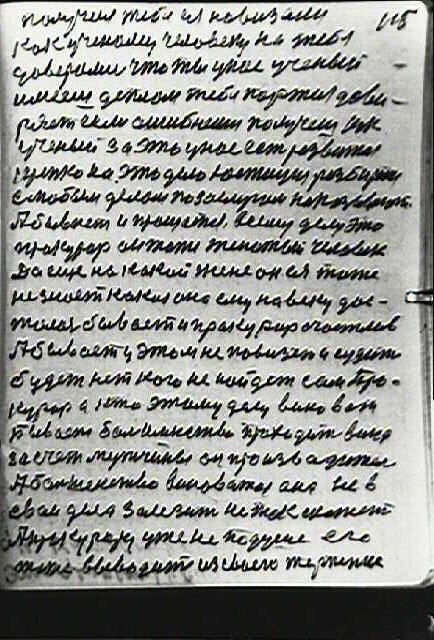 115
получен тебя и навизали
как ученому человеку на тебя
доверили что ты уное ученый
имееш деплом тебя партия дови-
ряет если ошибнеш получен как
ученый за это уное ест
на это дело юстиции разбити
делом по заслугам наказиват
А бывает и прощается всему делу это
пракурор он тоже женатый человек
Да еще на какой жене он ся тоже
незноет какая она ему на веку дос-
талая бывает и пракурор счастлив
А бывает у этом не повизен и судить
будет нет кого не найдет сам про-
курор а кто этому делу виноват
бывает болшинство приходит вина
за счет мужчины он произвадител
А болшенство виновата она не в
свои дела залезит не так скажет
А пракурору уже не подуше его
тоже выводит из своего терпение